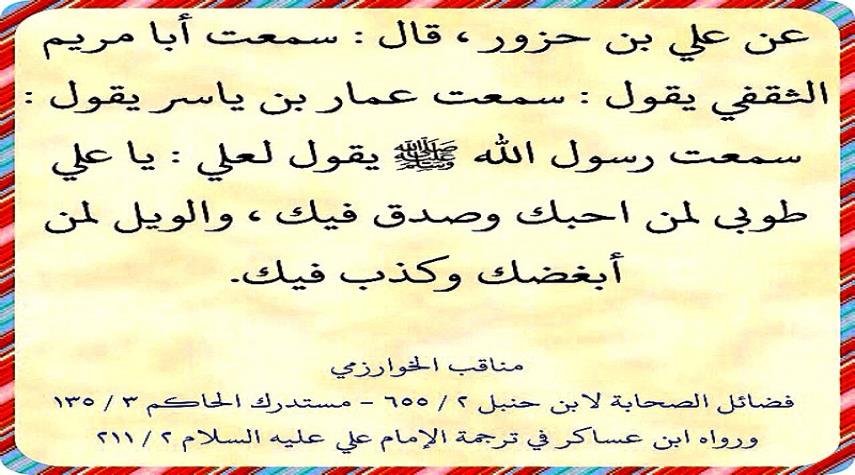 عن علي بن حزور ، قال : سمعت أبا مريم
الثقفي يقول : سمعت عمار بن ياسر يقول :
سمعت رسول الله ﷺ يقول لعلي : يا علي
طوبى لمن احبك وصدق فيك ، والويل لمن
أبغضك وكذب فيك.
مناقب الخوارزمي
فضائل الصحابة لابن حنبل ٢ / ٦٥٥ - مستدرك الحاكم ٣ / ١٣٥
ورواه ابن عساكر في ترجمة الإمام علي عليه السلام ٢ / ٢١١